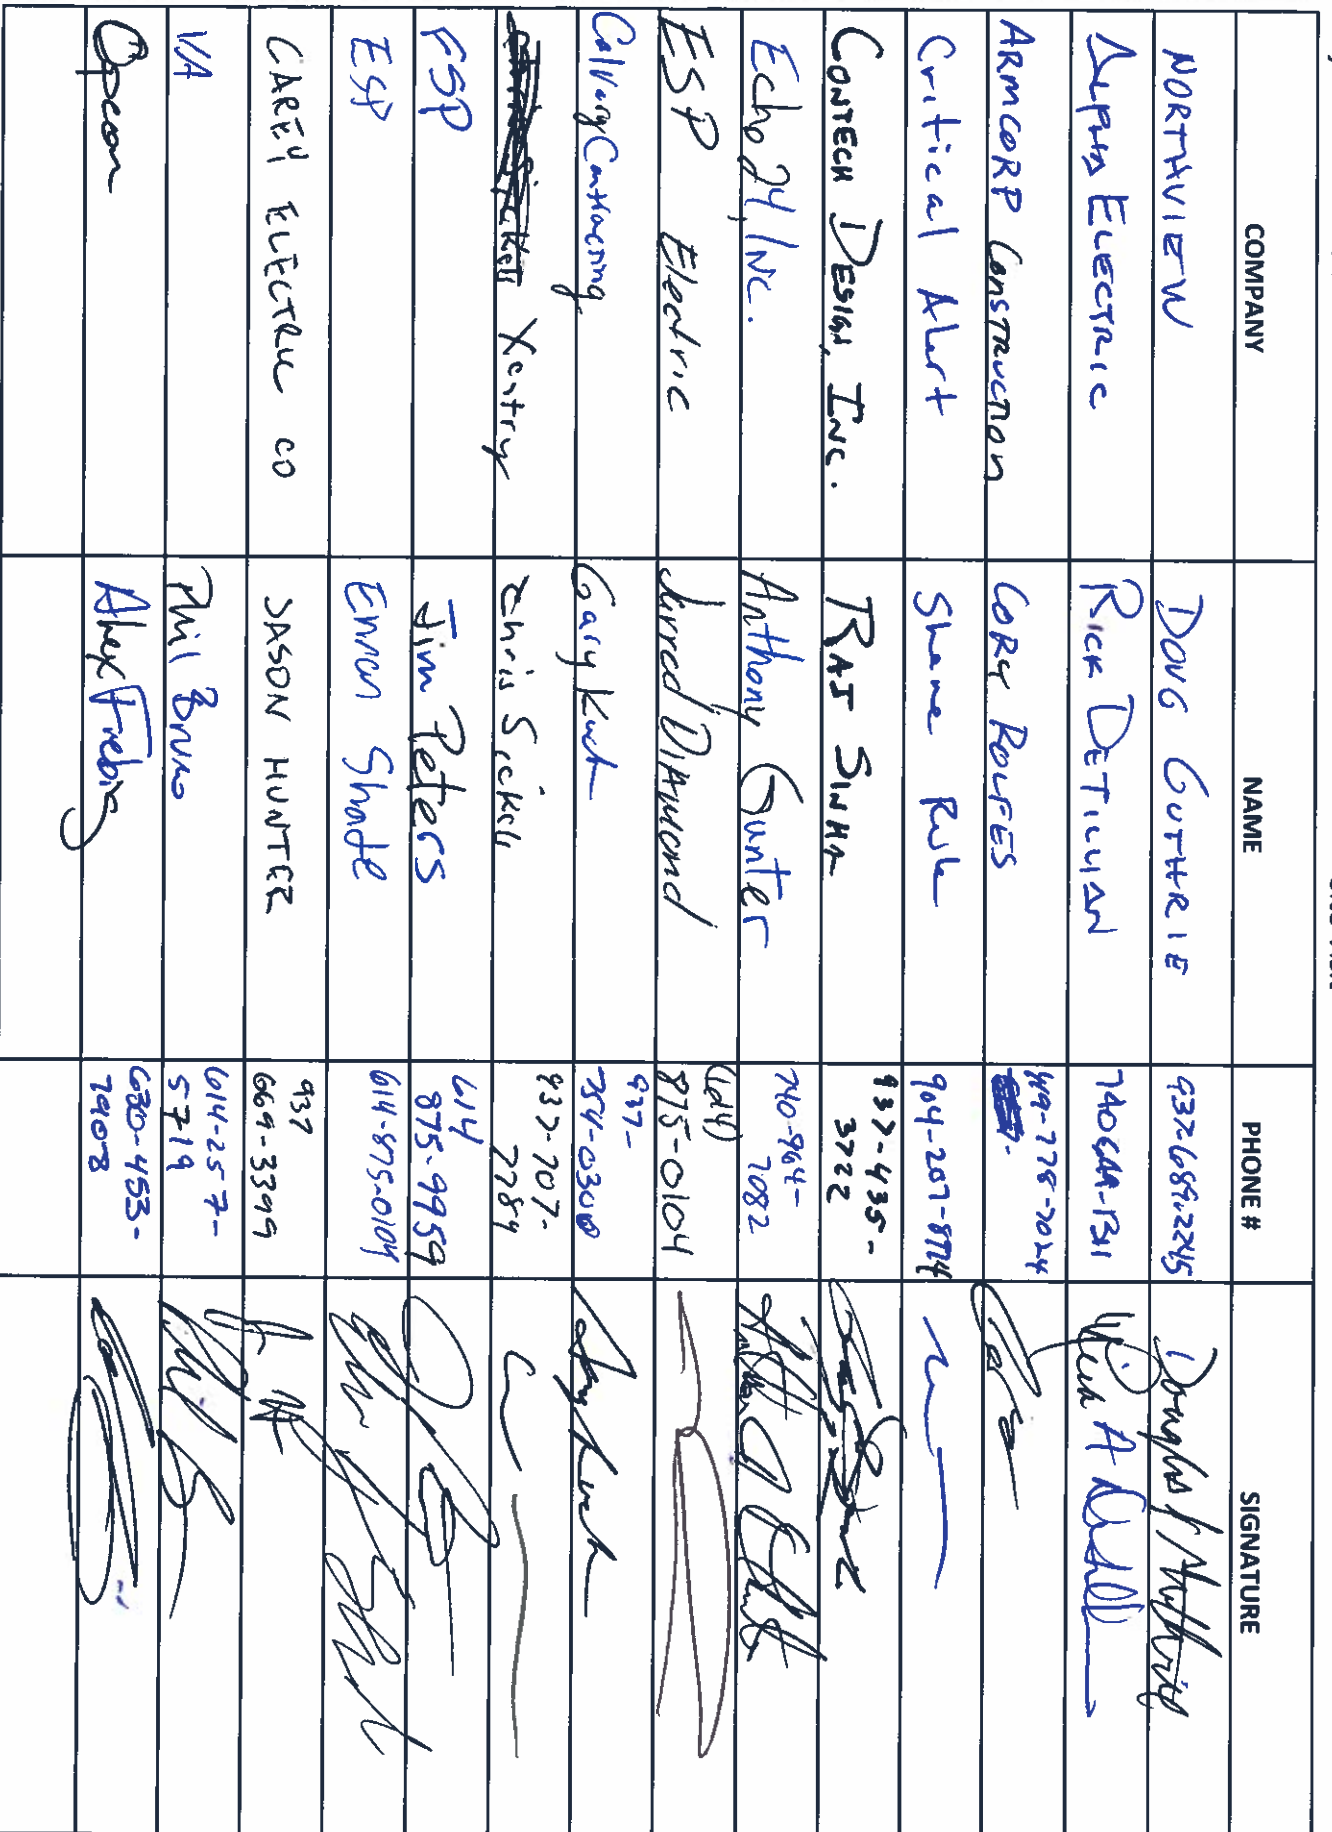 COMPANY NAME PHONE # SIGNATURE
NORTHVIEW DOUG GUTHRIE 937-689-2245
ALPHA ELECTRIC RICK DETILLIAN
ARMCORP CONSTRUCTION CORY ROLFES 419-778-7024
Critical Alert Shane 904-207-8774
CONTECH DESIGN, INC. RAJ SINHA 937-435-
3722
Echo 24, INC. Anthony Gunter 740-964-
7082
ESP Electric Jarred DIAmond (614)
875-0104
Calvary Contracting Gary 937-
754-0300
Xentry Chris Sickels 937-707-
7789
FSP Jim Peters 614
875-9959
ESP Eman Shade 614-875-0104
CAREY ELECTRIC CO JASON HUNTER 937
669-3399
VA Phil Bruno 614-257-
5719
Alex 630-453-
7908